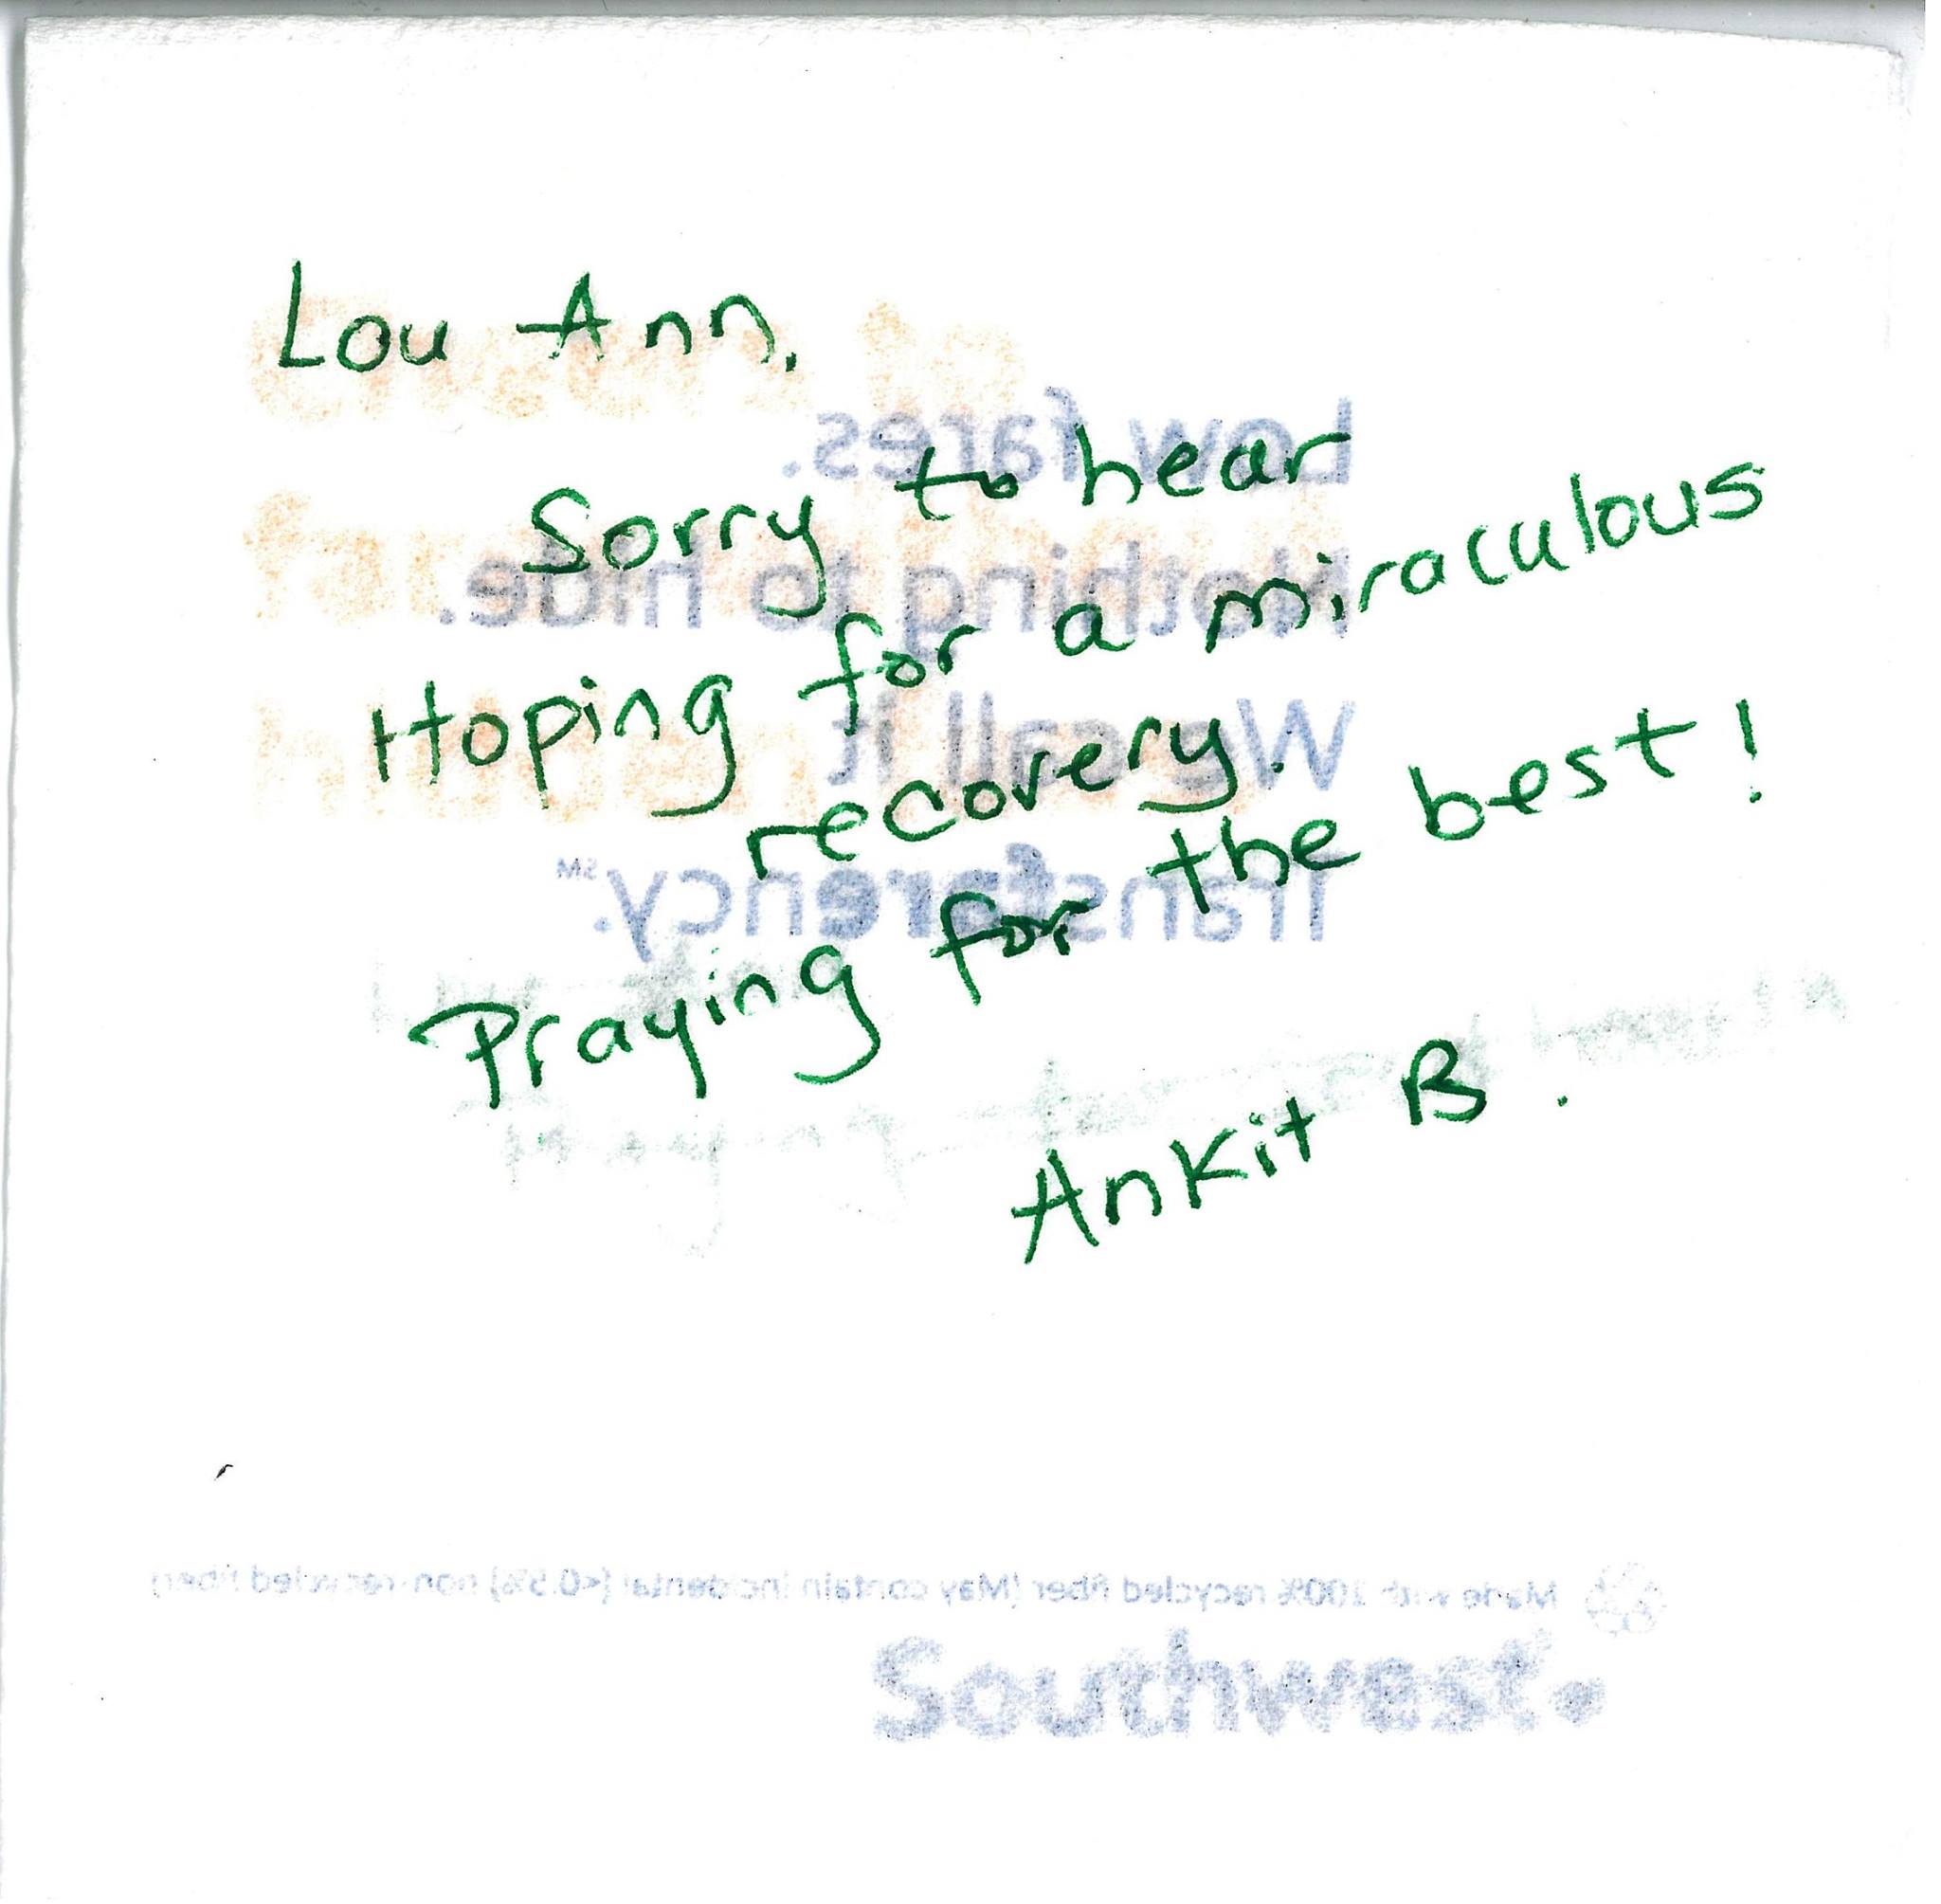 Lou Ann,
Sorry to hear
Hoping for a miraculous
recovery.
Praying for the best!
Ankit B.
Low fares.
Nothing to hide.
We call it
Transfarency.℠
Made with 100% recycled fiber (May contain incidental (<0.5%) non-recycled fiber)
Southwest